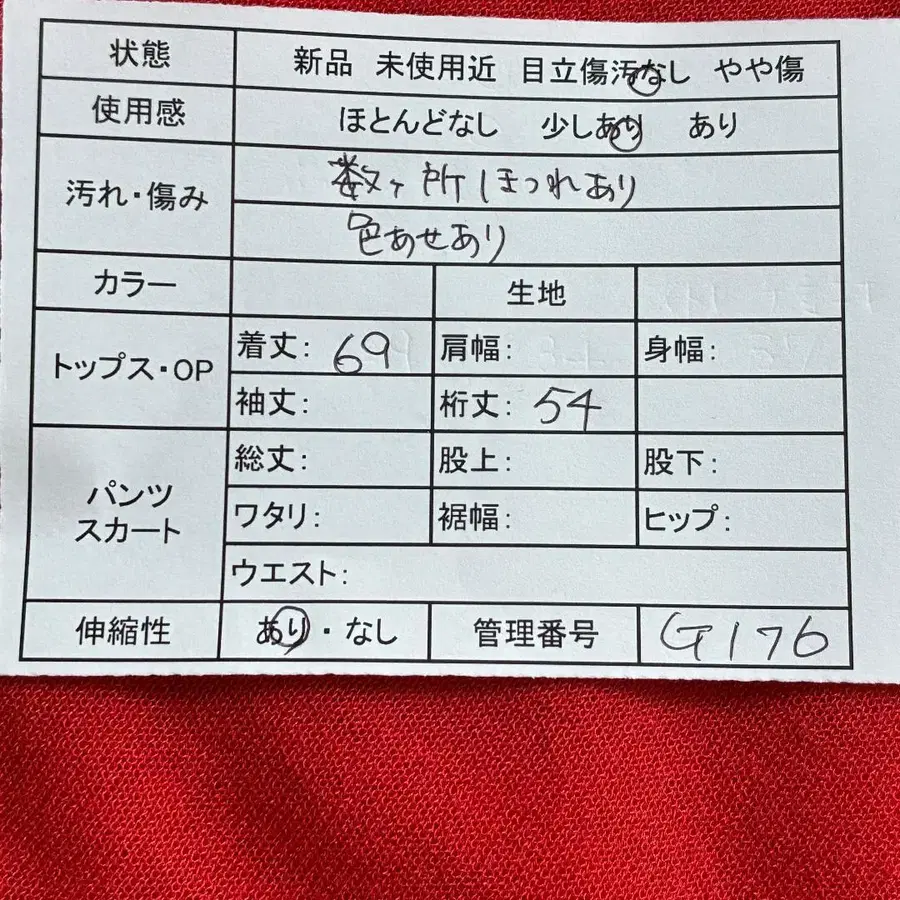 状態 新品 未使用近 目立傷汚なし やや傷
使用感 ほとんどなし 少しあり あり
汚れ・傷み 数ヶ所ほつれあり
色あせあり
カラー 生地
トップス・OP 着丈: 69 肩幅: 身幅:
袖丈: 裄丈: 54
パンツ スカート 総丈: 股上: 股下:
ワタリ: 裾幅: ヒップ:
ウエスト:
伸縮性 あり・なし 管理番号 G176